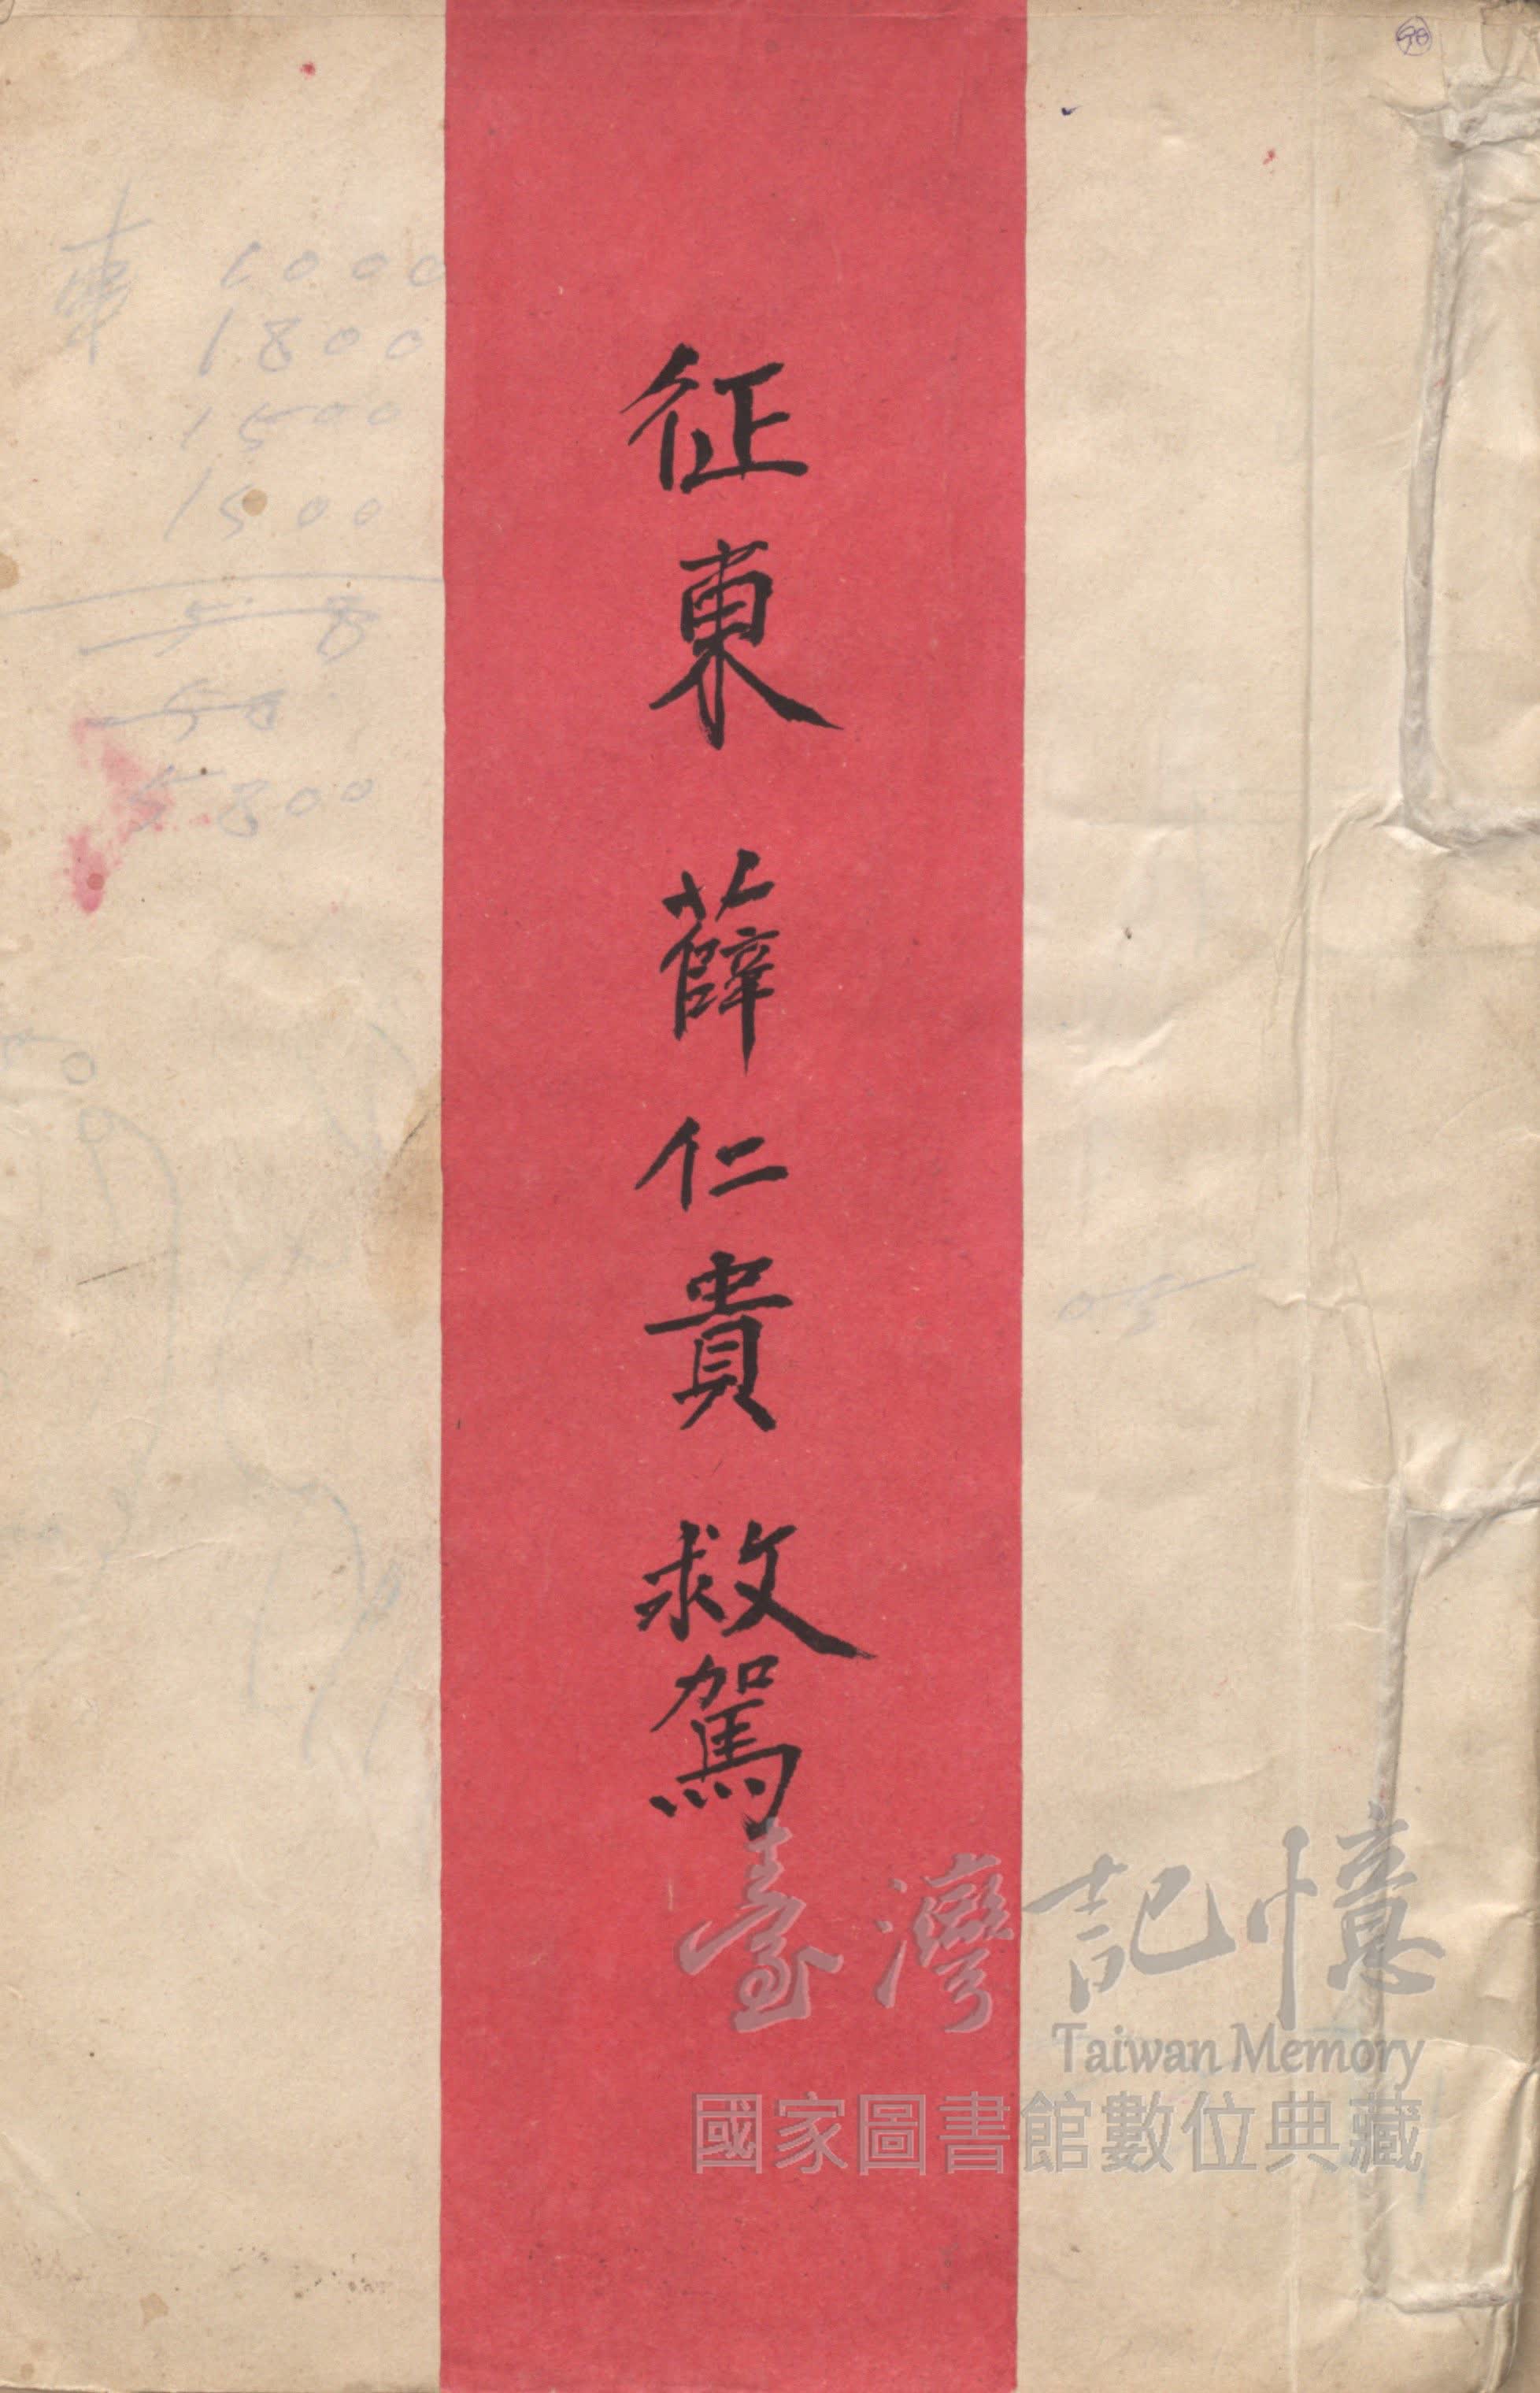 征東 薛仁貴 救駕
50
車 1000
1800
1500
1500
5 8
58
5800
臺灣記憶
Taiwan Memory
國家圖書館數位典藏